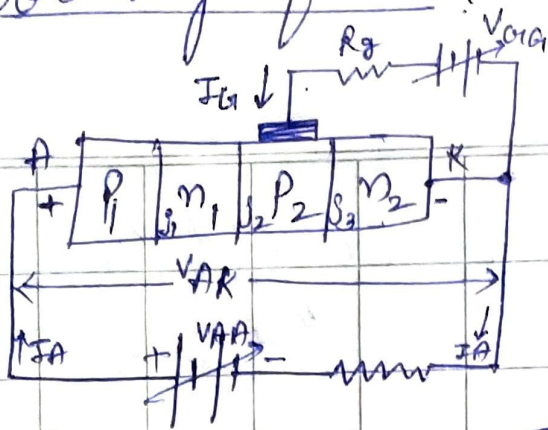 Rg
VGG
IG ↓
A
K
P1 J1 n1 J2 P2 J3 n2
+
-
VAK
↑IA
+
VAA
-
IA ↓